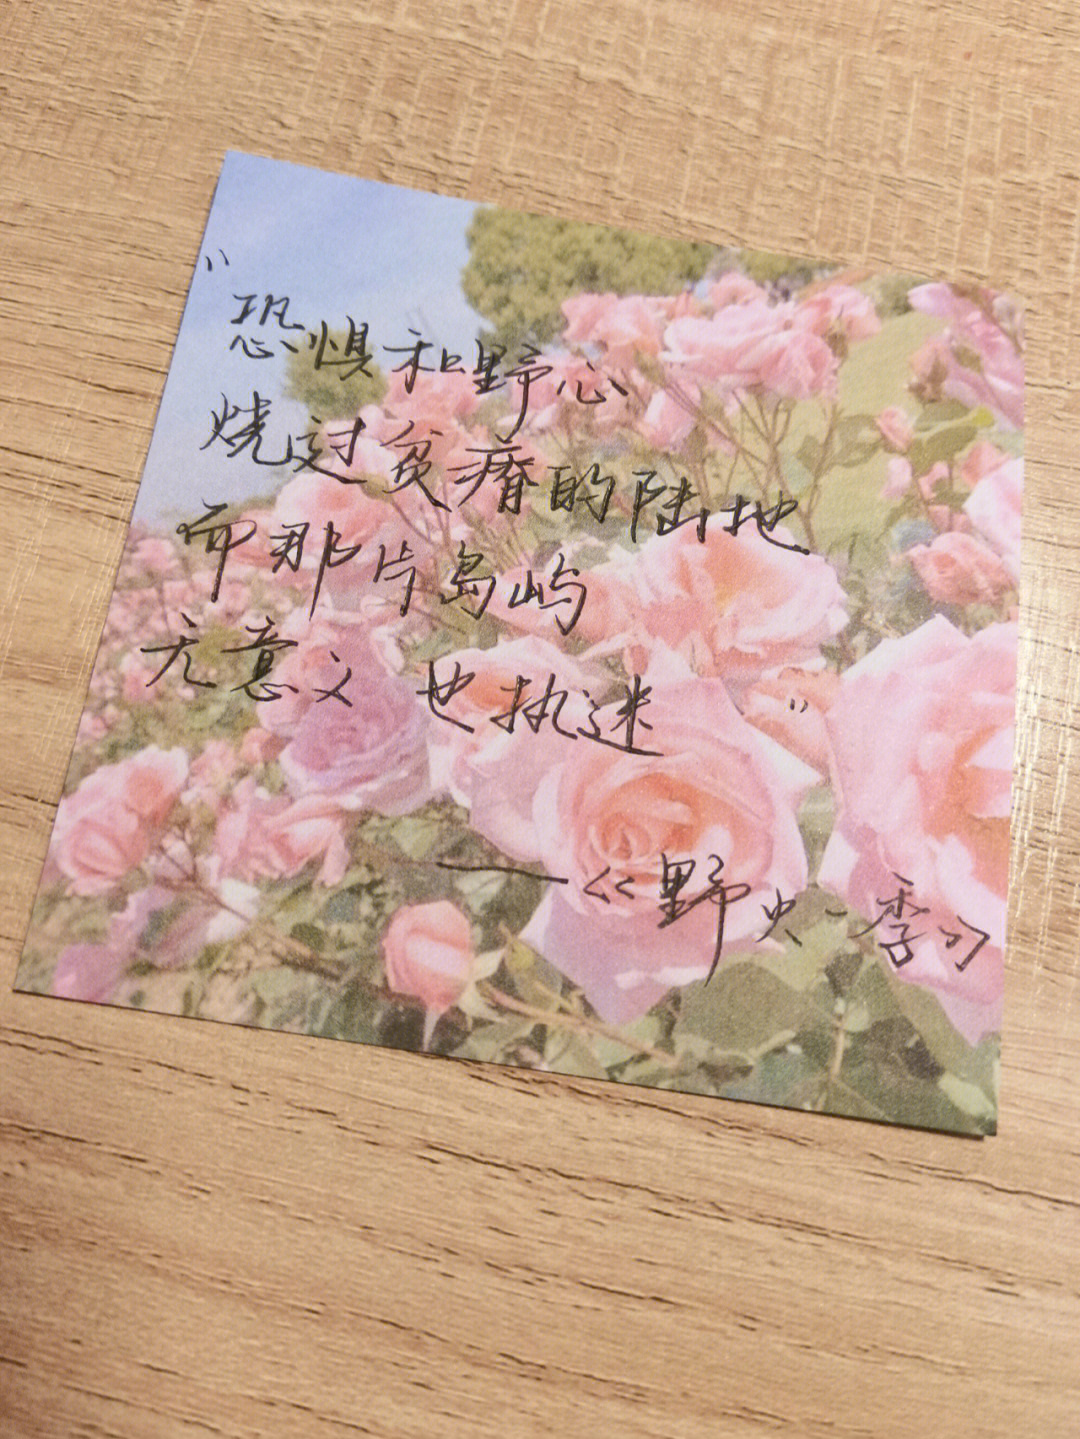 "恐惧和野心
烧过贫瘠的陆地
而那片岛屿
无意义 也执迷"
——《野火一季》